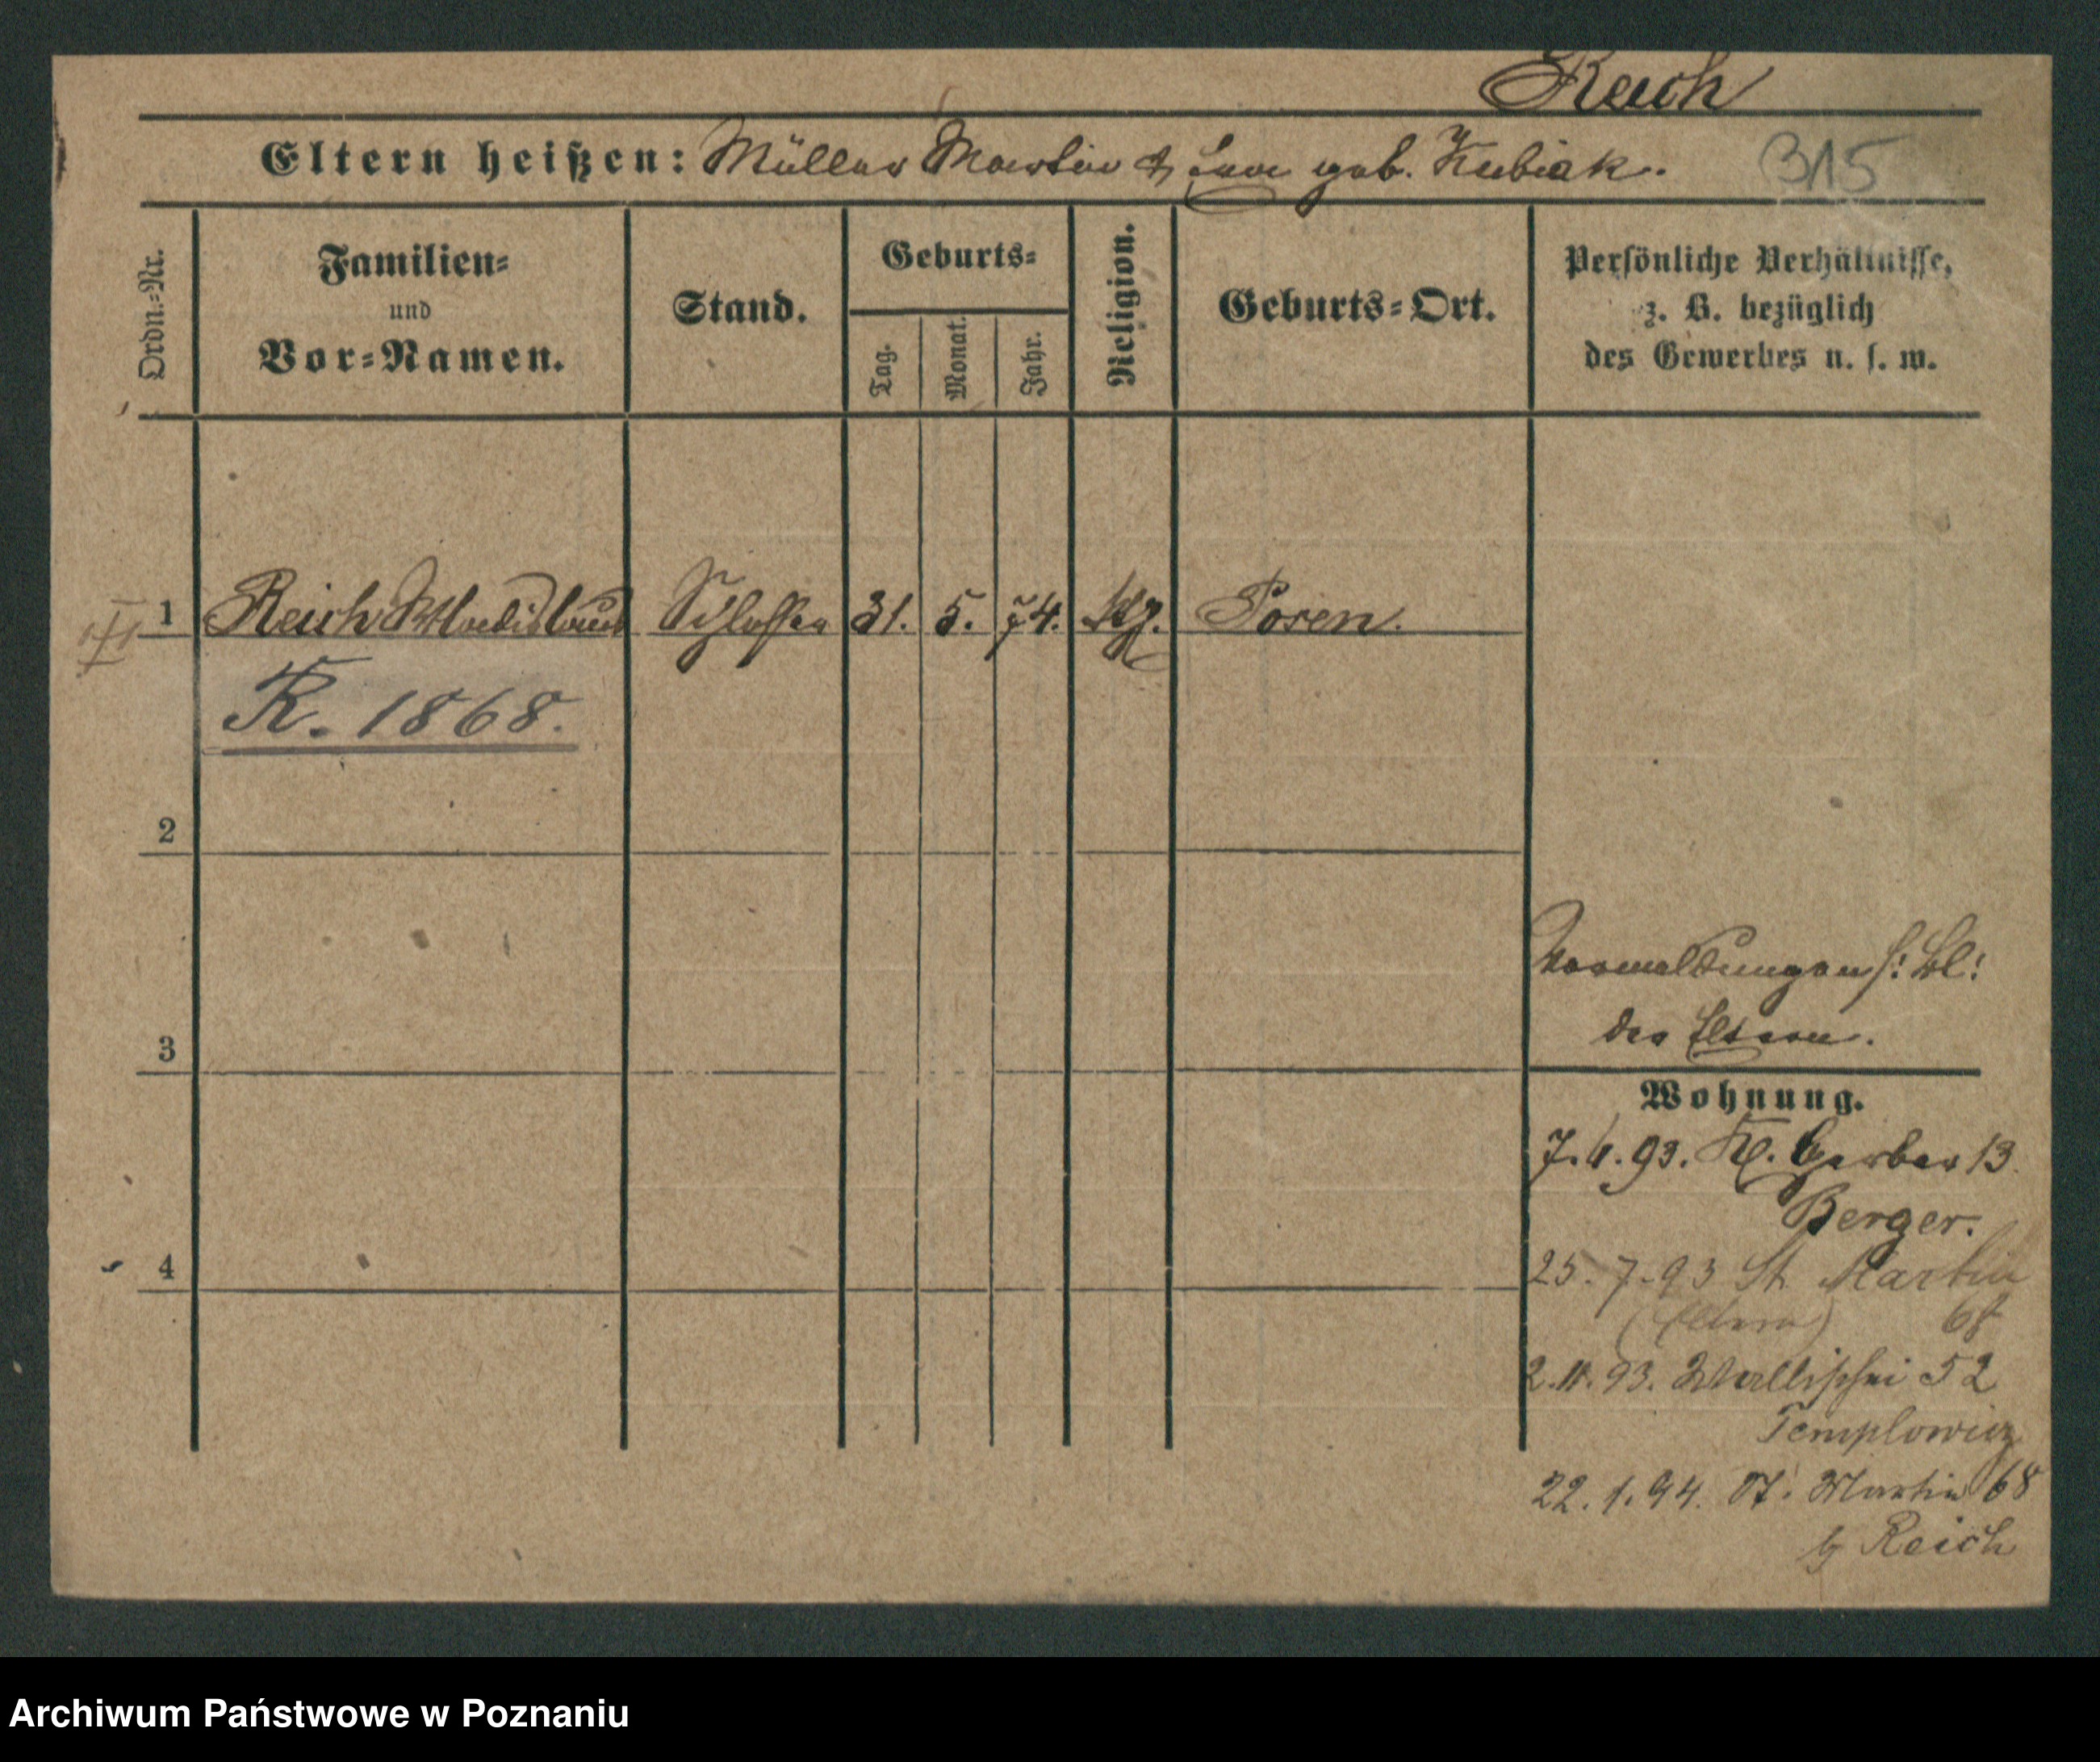 Reich
Eltern heißen: Müller Martin & Eva geb. Kubiak.
315
Ordn.=Nr.
Familien=
und
Vor=Namen.
Stand.
Geburts=
Tag.
Monat.
Jahr.
Religion.
Geburts=Ort.
Persönliche Verhältnisse,
z. B. bezüglich
des Gewerbes u. s. w.
1 Reich Wladislaus Schlosser 31. 5. 74. Posen.
K. 1868.
2
3
4
Vormeldungen s: Bl:
der Eltern.
Wohnung.
7. 93. Kl. Gerber 13.
Berger.
25. 7. 93 St. Martin
(Eltern) 68
2. 93. Wallischei 52
Templowicz
22. 1. 94. St. Martin 68
b/ Reich
Archiwum Państwowe w Poznaniu